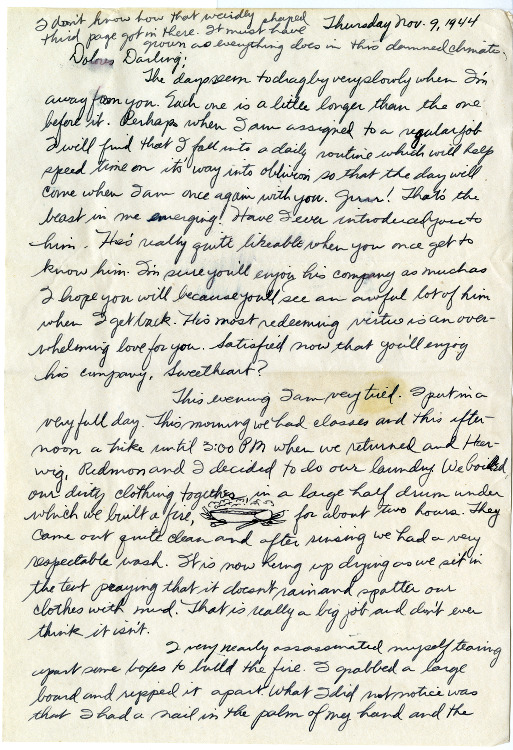 I don't know how that weirdly shaped
third page got in there. It must have
grown as everything does in this damned climate.
Thursday Nov. 9, 1944
Dolores Darling;
The days seem to drag by very slowly when I'm
away from you. Each one is a little longer than the one
before it. Perhaps when I am assigned to a regular job
I will find that I fall into a daily routine which will help
speed time on it's way into oblivion so that the day will
come when I am once again with you. Grrrr! That's the
beast in me emerging! Have I ever introduced you to
him. He's really quite likeable when you once get to
know him. I'm sure you'll enjoy his company as much as
I hope you will because you'll see an awful lot of him
when I get back. His most redeeming virtue is an over-
whelming love for you. Satisfied now that you'll enjoy
his company, Sweetheart?
This evening I am very tired. I put in a
very full day. This morning we had classes and this after-
noon a hike until 3:00 PM when we returned and Hear-
wig, Redmon and I decided to do our laundry. We boiled,
our dirty clothing together in a large half drum under
which we built a fire, for about two hours. They
came out quite clean and after rinsing we had a very
respectable wash. It is now hung up drying as we sit in
the tent praying that it doesn't rain and spatter our
clothes with mud. That is really a big job and don't ever
think it isn't.
I very nearly assassinated myself tearing
apart some boxes to build the fire. I grabbed a large
board and ripped it apart. What I did not notice was
that I had a nail in the palm of my hand and the